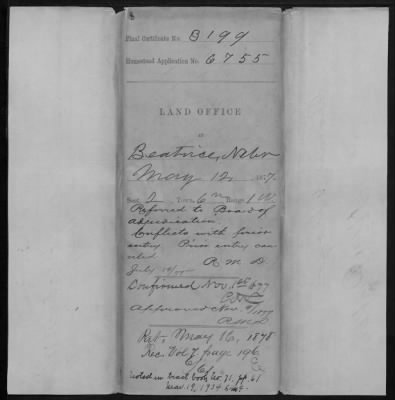 Final Certificate No. B199
Homestead Application No. 6755
LAND OFFICE
AT
Beatrice, Nebr
May 12, 1877.
Sect. 2 Town. 6 n Range 1 W.
Referred to Board of
adjudication.
Conflicts with prior
entry Prior entry can
celed R. W. D.
July
Confirmed Nov. 1st 1877
Approved Nov. 9/1877
Pat. May 16, 1878
Rec. Vol 7 page 196
Noted in tract book No. 71. pp. 61
Mar. 19, 1934